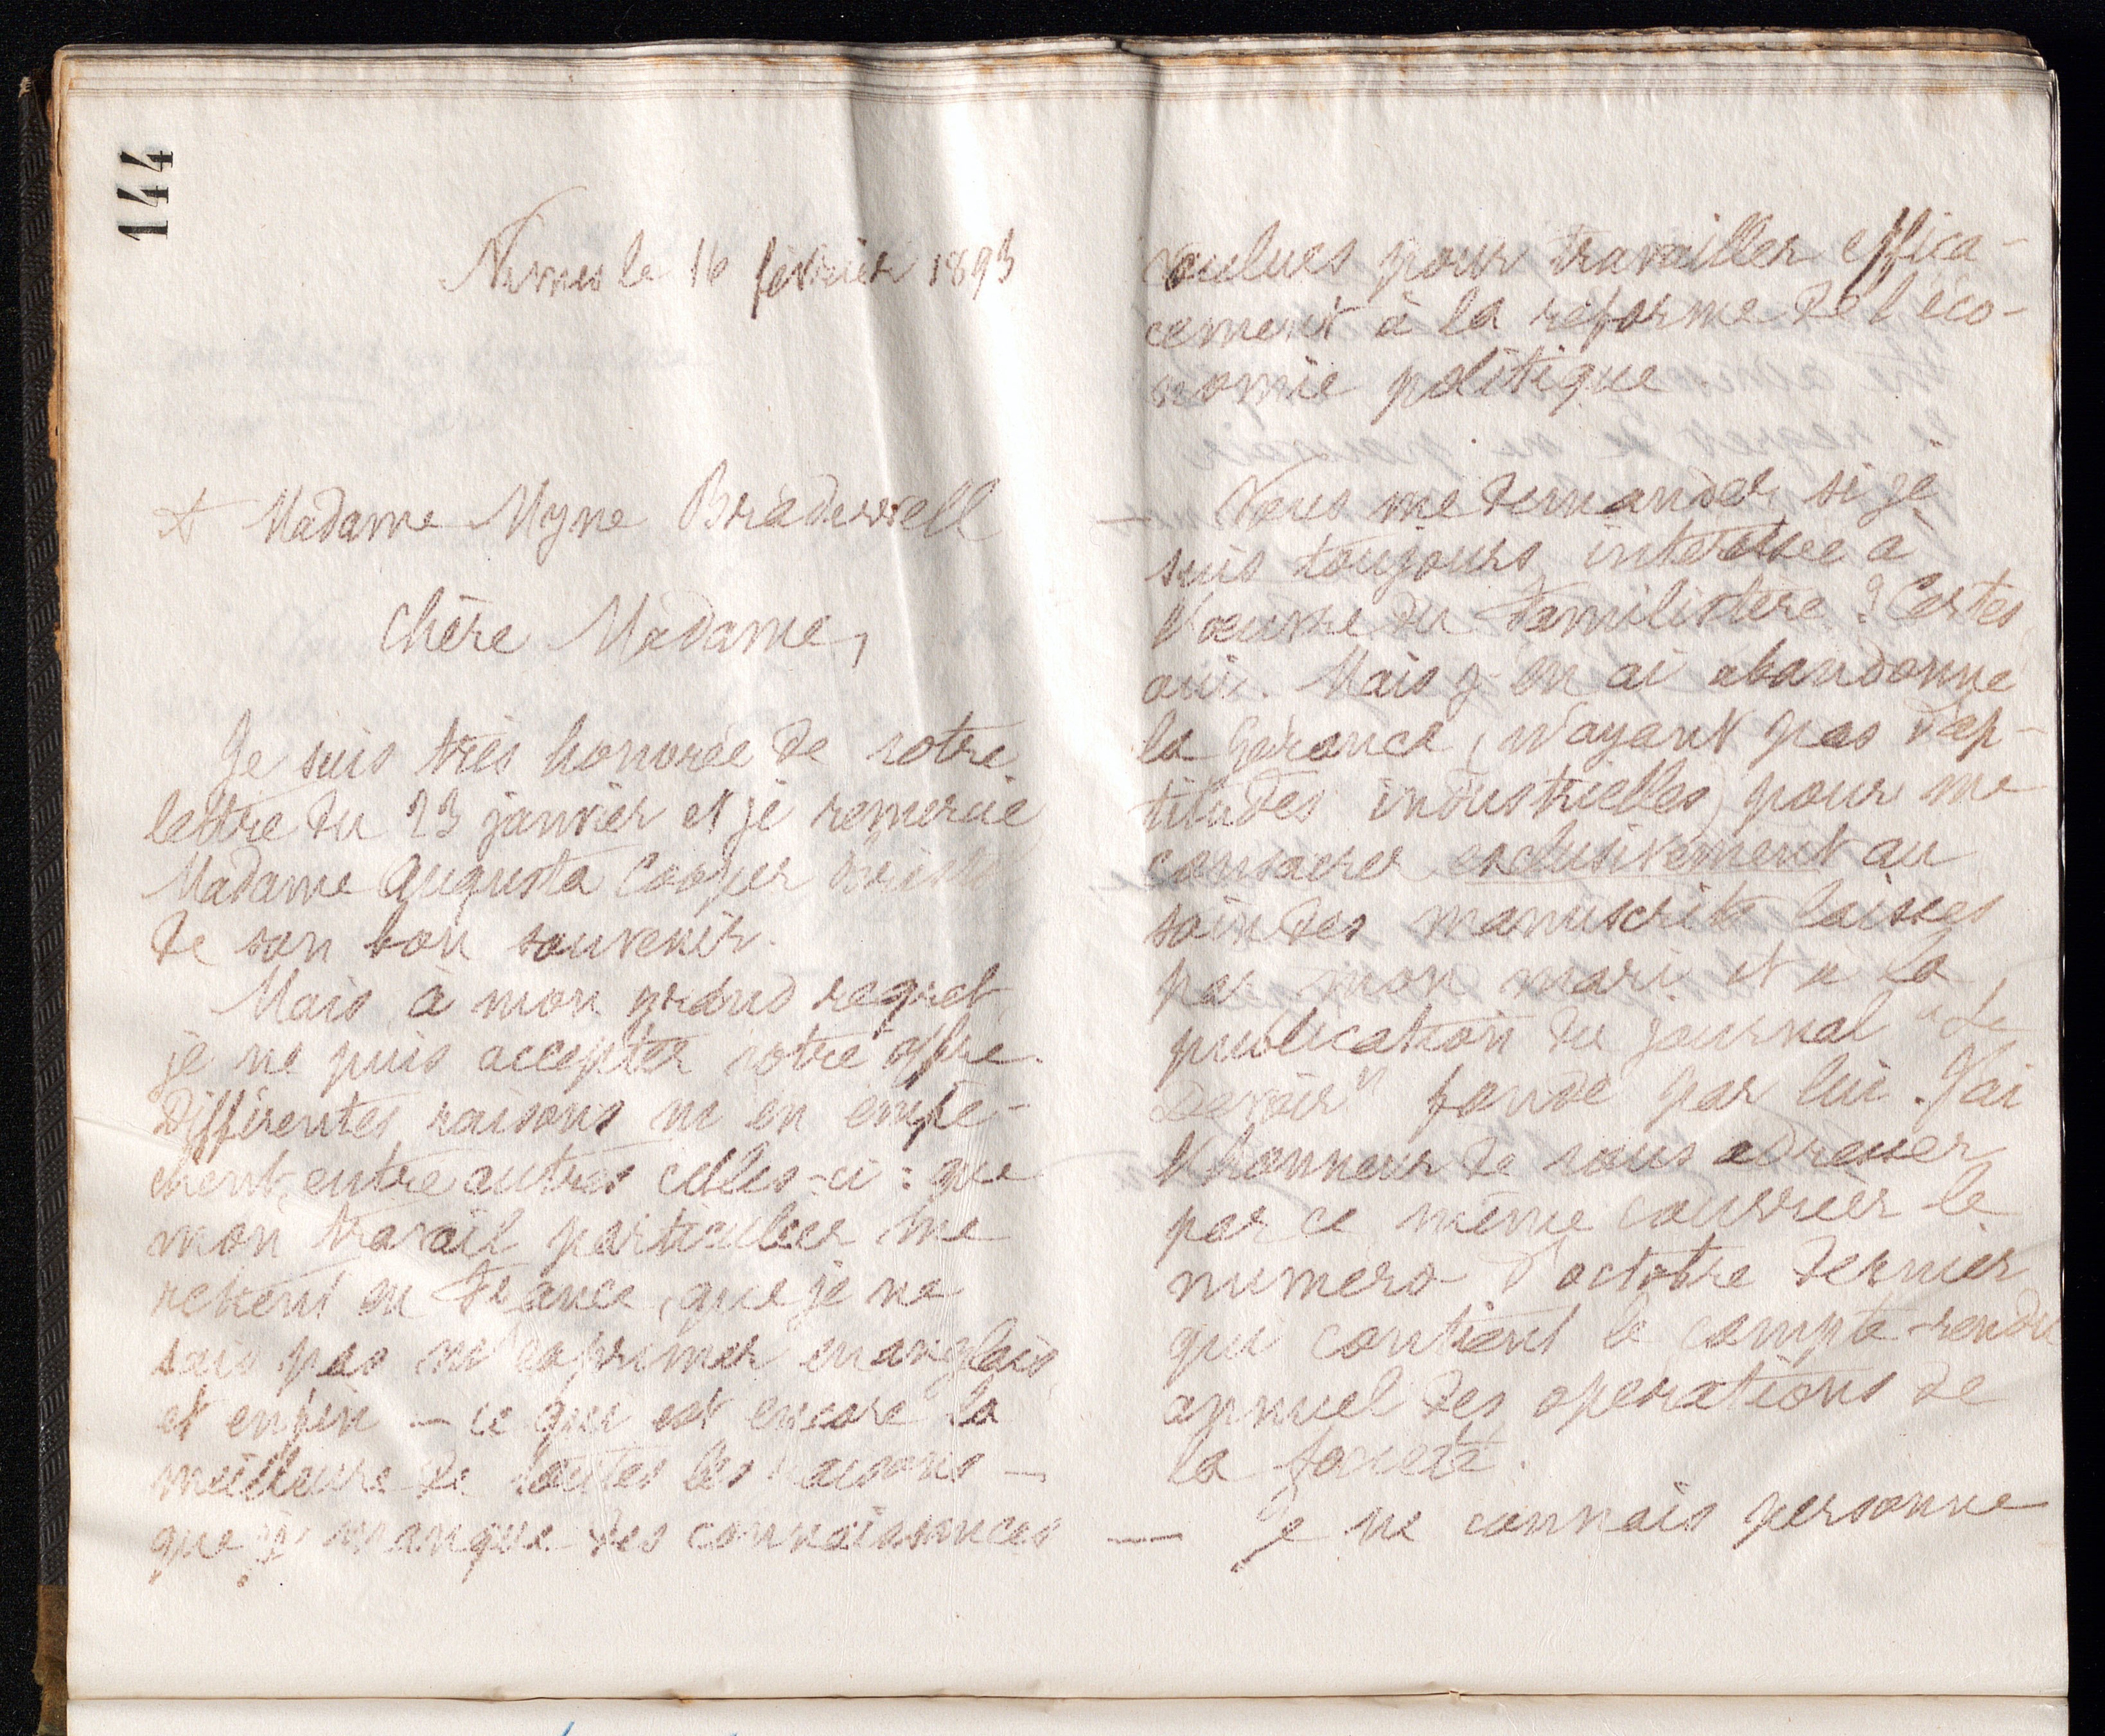 144
Nimes le 16 février 1893
A Madame Myne Bradwell
Chère Madame,
Je suis très honorée de votre
lettre du 23 janvier et je remercie
Madame Augusta Cooper Bristol
de son bon souvenir.
Mais, à mon grand regret,
je ne puis accepter votre offre.
Différentes raisons m'en empê-
chent, entre autres celles-ci : que
mon travail particulier me
retient en France, que je ne
sais pas m'exprimer en anglais,
et enfin — ce qui est encore la
meilleure de toutes les raisons —
que je manque des connaissances
voulues pour travailler effica-
cement à la réforme de l'éco-
nomie politique
— Vous me demandez si je
suis toujours intéressée à
l'œuvre du Familistère ? Certes,
oui. Mais j'en ai abandonné
la Gérance, (n'ayant pas d'ap-
titudes industrielles) pour me
consacrer exclusivement au
soin des manuscrits laissés
par mon mari et à la
publication du journal "Le
Devoir" fondé par lui. J'ai
l'honneur de vous adresser
par ce même courrier le
numéro d'octobre dernier
qui contient le compte-rendu
annuel des opérations de
la société.
— Je ne connais personne